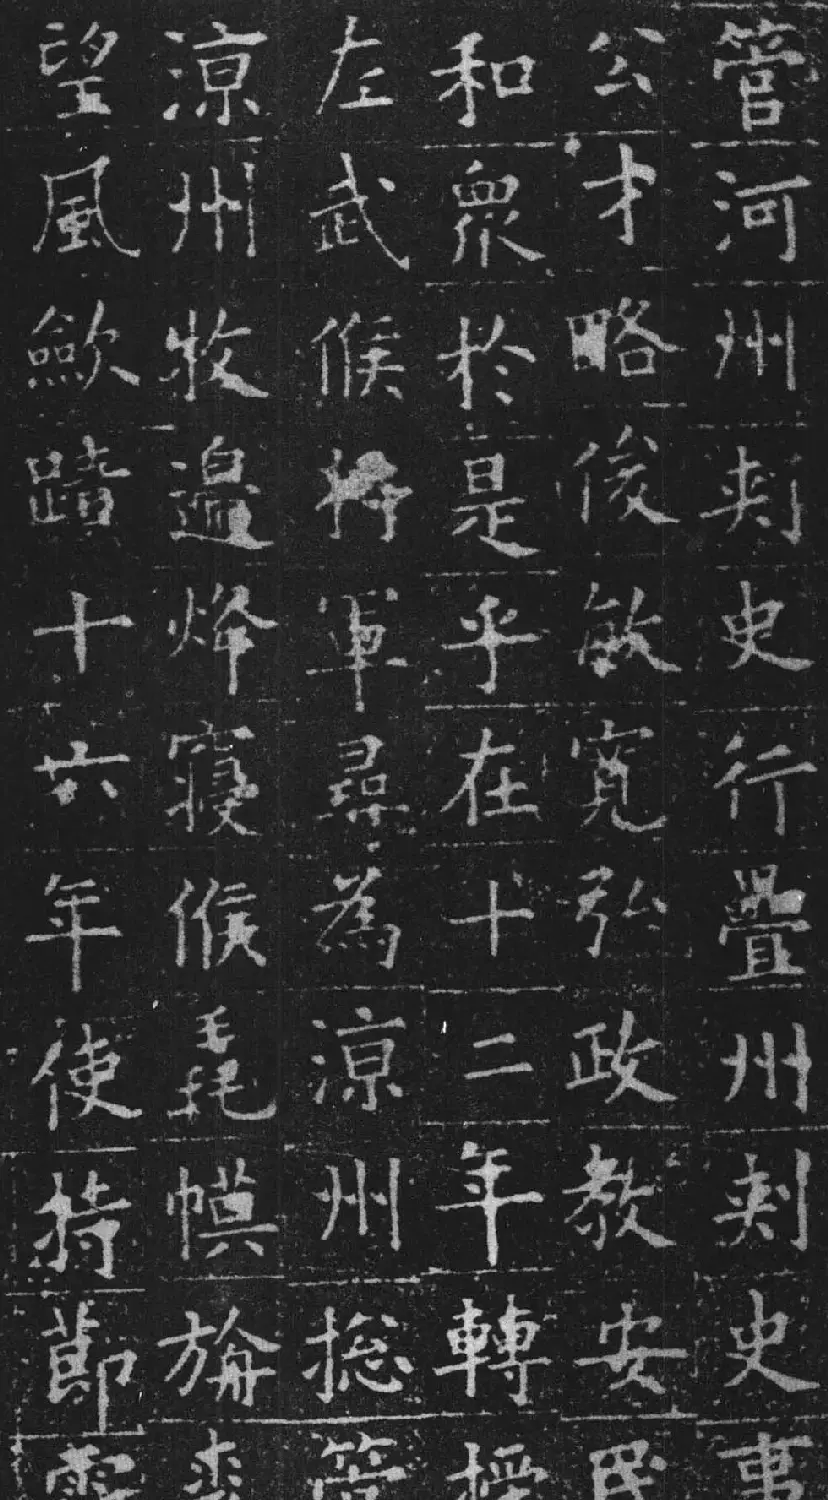 管河州刺史行疊州刺史事
公才略俊敏寬弘政教安民
和眾於是乎在十二年轉授
左武候將軍尋為涼州揔管
涼州牧邊烽寢候毳幙旃
望風斂蹟十六年使持節